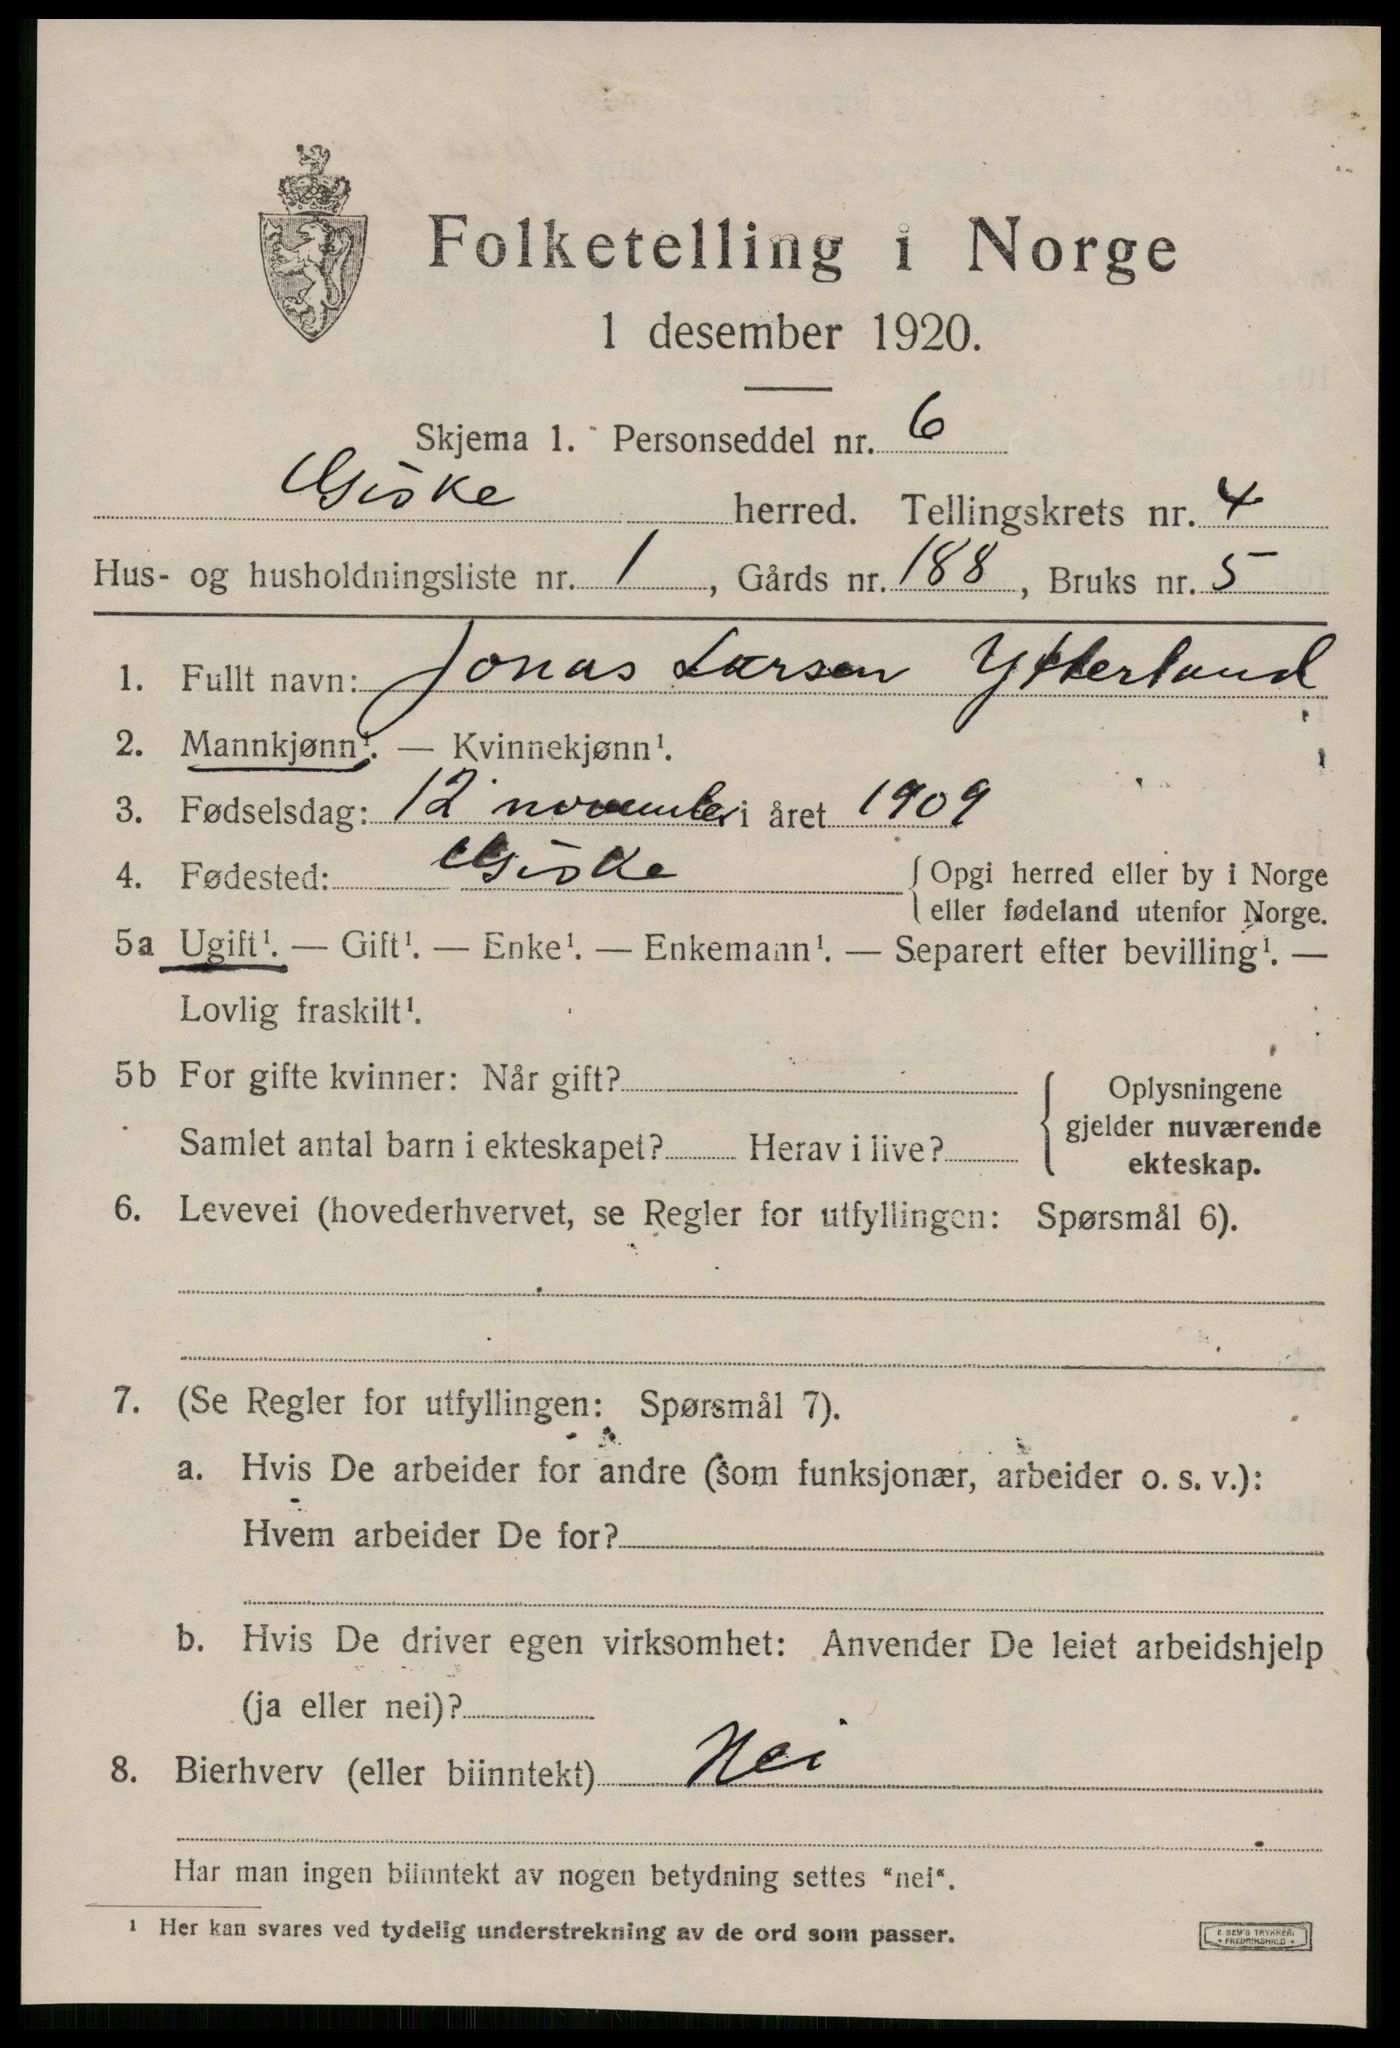 Folketelling i Norge
1 desember 1920.
Skjema 1. Personseddel nr. 6
Giske herred. Tellingskrets nr. 4
Hus- og husholdningsliste nr. 1, Gårds nr. 188, Bruks nr. 5
1. Fullt navn: Jonas Larsen Ytterland
2. Mannkjønn¹. — Kvinnekjønn¹.
3. Fødselsdag: 12 november i året 1909
4. Fødested: Giske { Opgi herred eller by i Norge
eller fødeland utenfor Norge.
5a Ugift¹. — Gift¹. — Enke¹. — Enkemann¹. — Separert efter bevilling¹. —
Lovlig fraskilt¹.
5b For gifte kvinner: Når gift?
Samlet antal barn i ekteskapet? Herav i live?
{ Oplysningene
gjelder nuværende
ekteskap.
6. Levevei (hovederhvervet, se Regler for utfyllingen: Spørsmål 6).
7. (Se Regler for utfyllingen: Spørsmål 7).
a. Hvis De arbeider for andre (som funksjonær, arbeider o. s. v.):
Hvem arbeider De for?
b. Hvis De driver egen virksomhet: Anvender De leiet arbeidshjelp
(ja eller nei)?
8. Bierhverv (eller biinntekt) Nei
Har man ingen biinntekt av nogen betydning settes "nei".
¹ Her kan svares ved tydelig understrekning av de ord som passer.
E. SEM'S TRYKKERI
FREDRIKSHALD